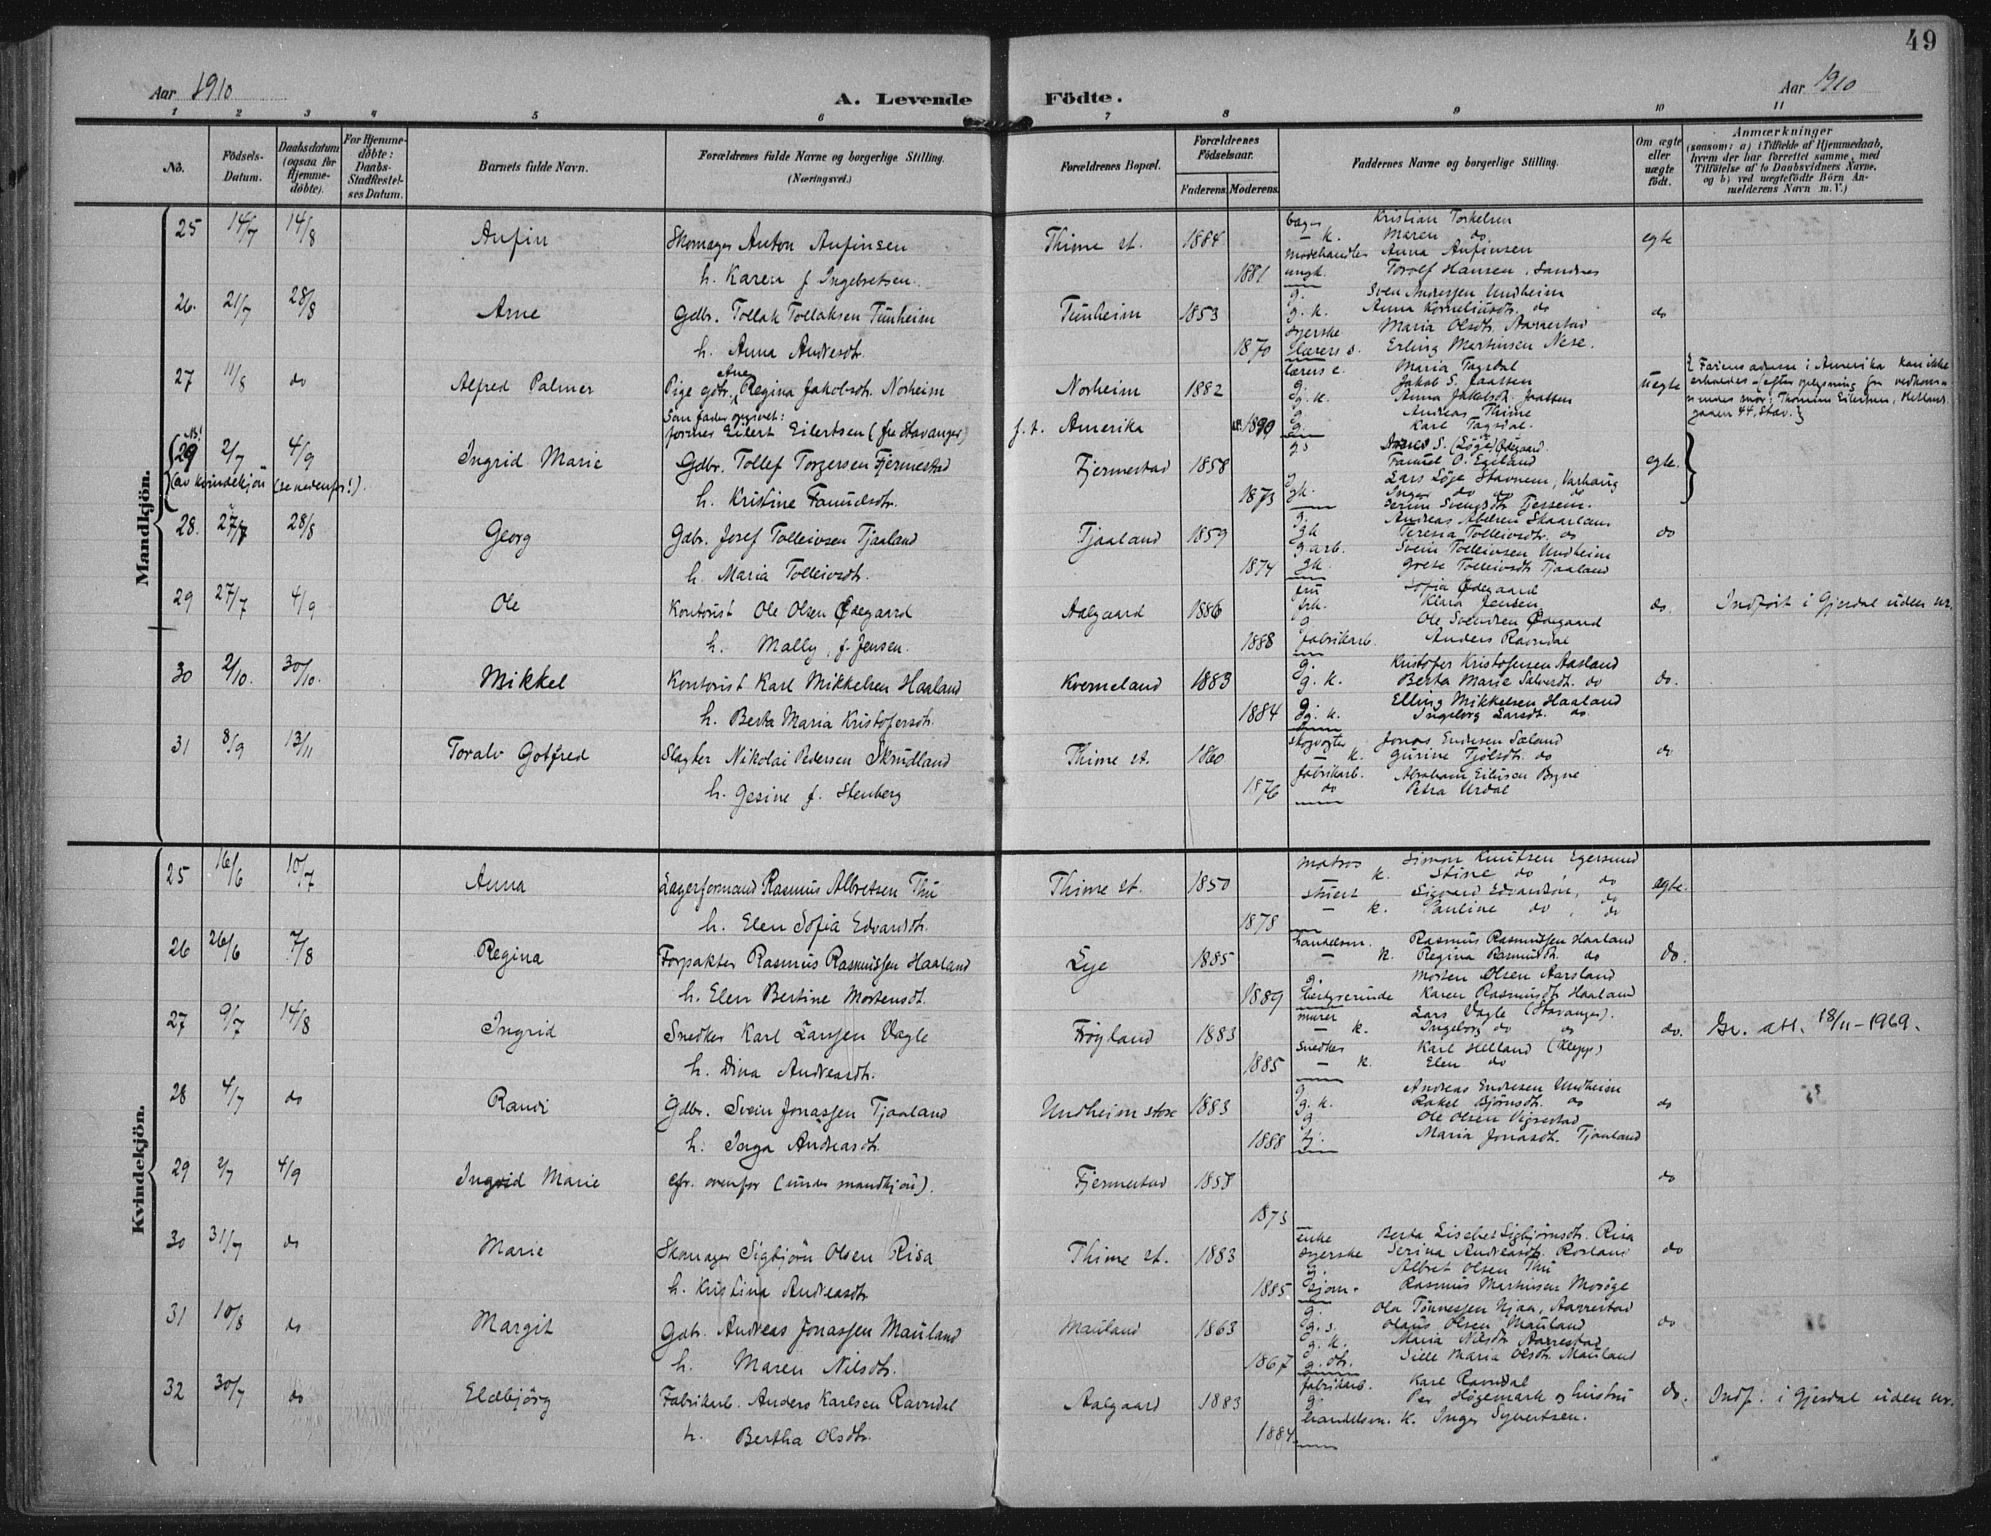 49
Aar 1910
A. Levende Födte.
Aar 1910
1 2 3 4 5 6 7 8 9 10 11
No.
Födsels-Datum.
Daabsdatum (ogsaa for Hjemmedöbte).
For Hjemmedöbte: Daabs-Stadfæstelses Datum.
Barnets fulde Navn.
Forældrenes fulde Navne og borgerlige Stilling. (Næringsvei.)
Forældrenes Bopæl.
Forældrenes Födselsaar.
Faderens. Moderens.
Faddernes Navne og borgerlige Stilling.
Om ægte eller uægte födt.
Anmærkninger (saasom: a) i Tilfælde af Hjemmedaab, hvem der har forrettet samme, med Tilföielse af to Daabsvidners Navne, og b) ved uægtefödte Börn Anmelderens Navn m. V.)
Mandkjön.
25 14/7 14/8 Anfin Skomager Anton Anfinsen Thime st. 1884 Kristian Torkelsen egte
– k. Maren do
Anna Anfinsen
h. Karen f. Ingebretsen. 1881 ungk. Torolf Hansen, Sandnes
26. 21/7 28/8 Arne Gdbr. Tollak Tollaksen Tunheim Tunheim 1853 g. Sven Andersen Undheim do
g. k. Anna Korneliusdt. do
syerske Maria Olsdt. Aarrestad
h. Anna Andreasdt. 1870 lærers s. Erling Martinsen Nese.
27 11/8 do Alfred Palmer Pige gdtr. Ane Regina Jakobsdt. Norheim Norheim 1882 Maria Tagsdal uegte
g. Jakob S. Jaassen
g. k. Anna Jakobsdt. Jaassen
Som fader opgivet: Andreas Thime
former Eilert Eilertsen (fra Stavanger) f. t. Amerika 1890 g. Karl Tagsdal.
{Farens adresse i Amerika kan ikke erholdes
29 2/7 4/9 Ingrid Marie Gdbr. Tollef Torgersen Fjermestad Fjermestad 1858 egte.
(av kvindekjön (se nedenfor!).
h. Kristine Samuelsdt. 1873
28. 27/7 28/8 Georg Gdbr. Josef Tolleivsen Tjaaland Tjaaland 1859 g. Andreas Abelsen Skaarland do
gk Teresia Tolleivsdt. do
g. arb. Svein Tolleivsen Undheim
h. Maria Tolleivsdt. 1874 gk. Grete Tolleivsdt Tjaaland
29 27/7 4/9 Ole Kontorist Ole Olsen Ödegaard Aalgaard 1886 fru Sofia Ödegaard do. Indfört i Gjesdal uden nr.
Klara Jensen
g. Ole Svendsen Ödegaard
h. Mally, f. Jensen. 1888 fabrikarb. Anders Ravndal
30 2/10. 30/10. Mikkel Kontorist Karl Mikkelsen Haaland Kverneland 1883 g. Kristofer Kristofersen Aasland do.
g. k. Berta Marie Salvesdt. do
g. Elling Mikkelsen Haaland
h. Berta Maria Kristofersdt. 1884 g. k. Ingeborg Larsdt. do
31 8/9 13/11 Toralv Gotfred Slagter Nikolai Pedersen Skrudland Thime st. 1860 skogvogter Jonas Endresen Sæland do
– k. Gurine Tjölsdt. do
fabrikarb. Abraham Eilusen Bryne
h. Gesine f. Stenberg 1876 do Petra Urdal
Kvindekjön.
25 16/6 10/7 Anna Lagerformand Rasmus Albretsen Thu Thime st. 1850 matros Simon Knutsen Egersund egte.
k. Stine do, do
stuert Sigvard Edvardsen, do
h. Elen Sofia Edvardsdt. 1878 – k. Pauline do, do
26 26/6 7/8 Regina Forpakter Rasmus Rasmussen Haaland Lye 1885 handelsm. Rasmus Rasmussen Haaland do.
– k. Regina Rasmusdt. do
g. Morten Olsen Aarsland
h. Elen Bertine Mortensdt. 1889 bestyrerinde Karen Rasmusdt. Haaland
27 9/7 14/8 Ingrid Snedker Karl Larssen Vagle Fröyland 1883 murer Lars Vagle (Stavanger). do. Gr. att. 18/11-1969.
– k. Ingeborg do do
snedker Karl Helland (Klepp)
h. Dina Andreasdt. 1885 – k. Elen do
28 4/7 do Randi Gdbr. Svein Jonassen Tjaaland Undheim store 1883 g. Andreas Endresen Undheim do
g. k. Rakel Björnsdt. do
g. Ole Olsen Vigrestad
h. Inga Andreasdt. 1888 tj. Maria Jonasdt. Tjaaland
29 2/7 4/9 Ingrid Marie cfr. ovenfor (under mandkjön). Fjermestad 1858 do
1873
30 31/7 do Marie Skomager Sigbjörn Olsen Risa Thime st. 1883 enke Berta Lisebet Sigbjörnsdt. Risa do
syerske Serina Andreasdt. Rosland
g. Albret Olsen Thu
h. Kristina Andreasdt. 1885. Rasmus Martinsen Mosige
31 10/8 do Margit Gdbr. Andreas Jonassen Mauland Mauland 1863 g. Ola Tönnessen Njaa, Aarrestad do
g. s. Olaus Olsen Mauland
g. k. Maria Nilsdt. Aarrestad
h. Maren Nilsdt. 1867 g. dt. Sille Maria Olsdt. Mauland
32 30/7 do Eldbjörg Fabrikarb. Anders Karlsen Ravndal Aalgaard 1883 fabrikarb. Karl Ravndal do. Indf. i Gjesdal uden nr.
g. Per Högemark og hustru
handelsm. k. Inger Syvertsen.
h. Bertha Olsdt. 1884